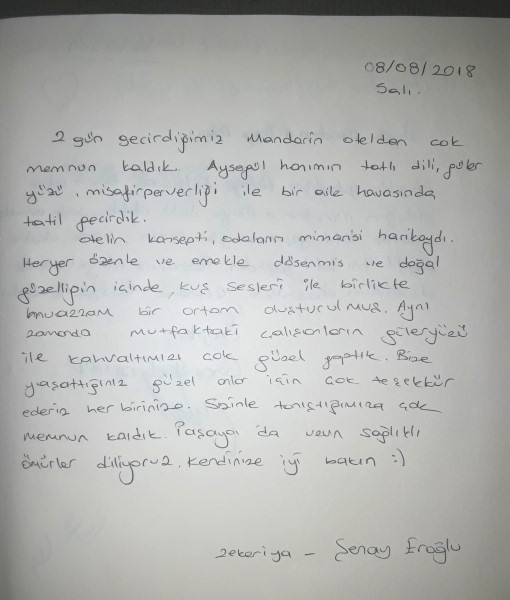 08/08/2018
Salı.
2 gün geçirdiğimiz Mandarin otelden çok
memnun kaldık. Ayşegül hanımın tatlı dili, güler
yüzü, misafirperverliği ile bir aile havasında
tatil geçirdik.
Otelin konsepti, odaların mimarisi harikaydı.
Heryer özenle ve emekle döşenmiş ve doğal
güzelliğin içinde, kuş sesleri ile birlikte
muazzam bir ortam oluşturulmuş. Aynı
zamanda mutfaktaki çalışanların güleryüzü
ile kahvaltımızı çok güzel yaptık. Bize
yaşattığınız güzel anlar için çok teşekkür
ederiz her birinize. Sizinle tanıştığımıza çok
memnun kaldık. Paşaya'da uzun sağlıklı
ömürler diliyoruz. Kendinize iyi bakın :)
Zekeriya - Şenay Eroğlu